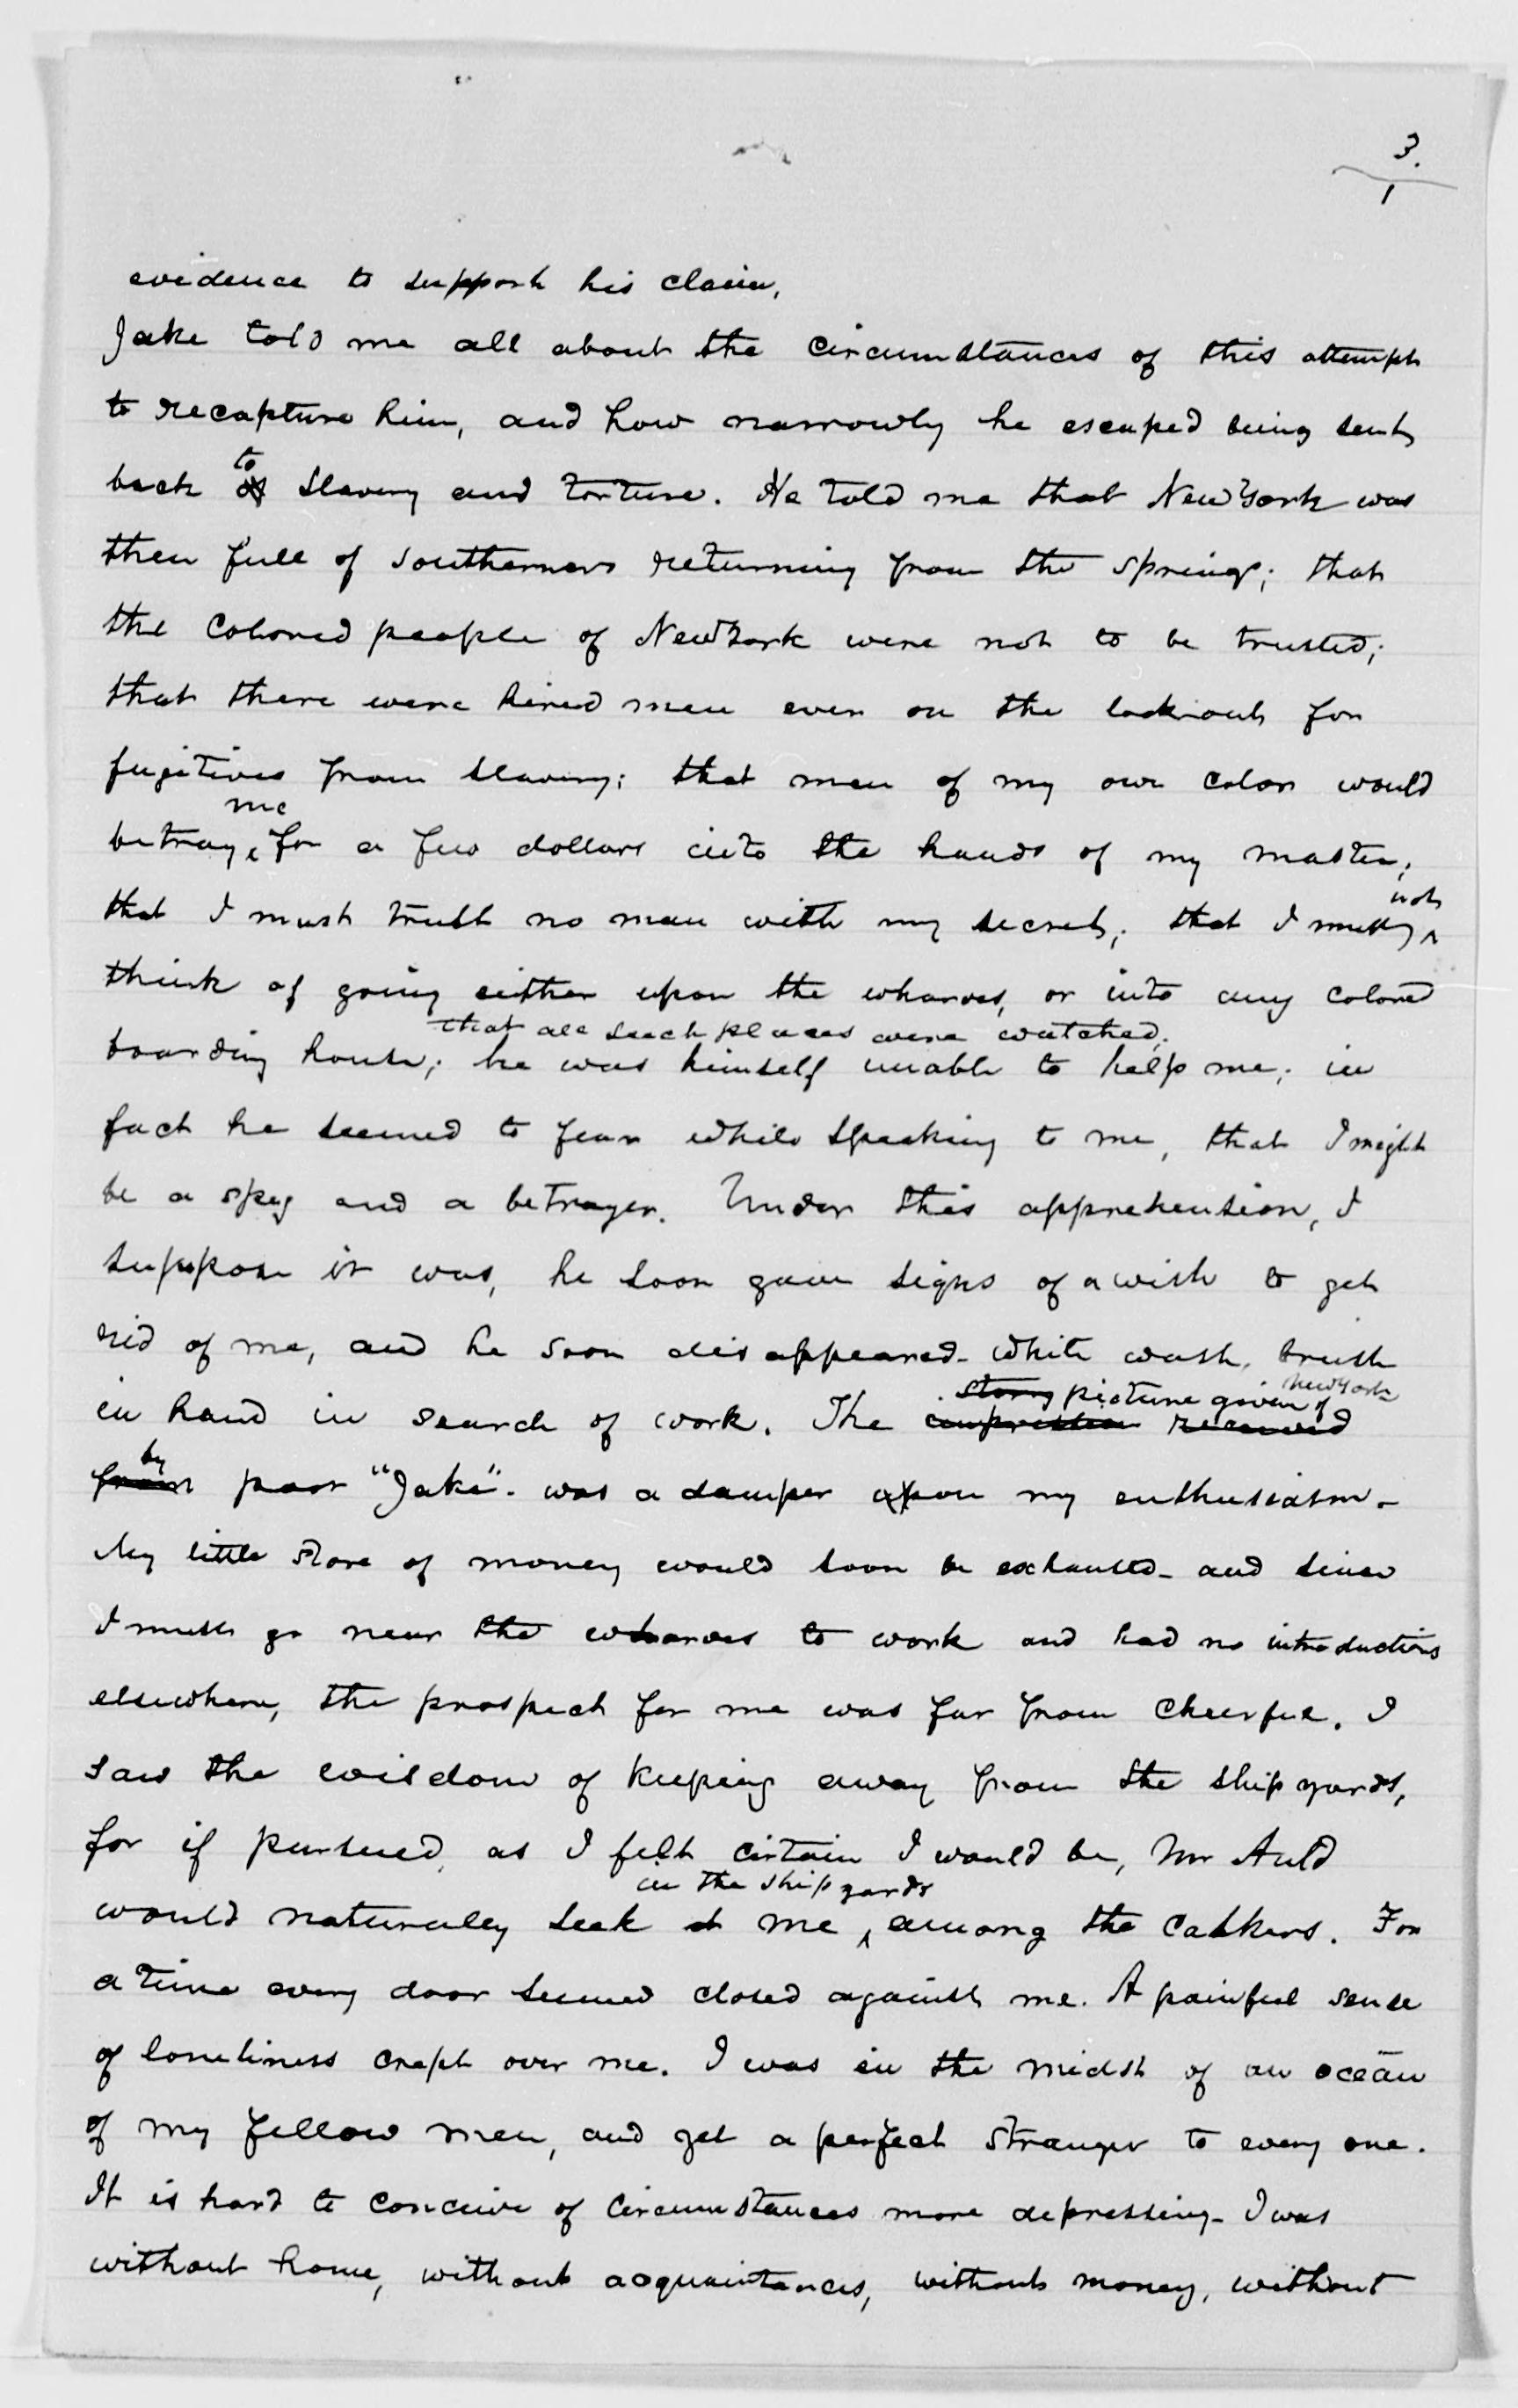 3.
1
evidence to support his claim.
Jake told me all about the circumstances of this attempt
to recapture him, and how narrowly he escaped being sent
to
back of slavery and torture. He told me that New York was
then full of southerners returning from the springs; that
the colored people of New York were not to be trusted;
that there were hired men even on the lookout for
fugitives from slavery; that men of my own color would
me
betray, for a few dollars into the hands of my master;
not
that I must trust no man with my secret; that I must
think of going either upon the wharves, or into any colored
that all such places were watched;
boarding house; he was himself unable to help me; in
fact he seemed to fear while speaking to me, that I might
be a spy and a betrayer. Under this apprehension, I
suppose it was, he soon gave signs of a wish to get
rid of me, and he soon disappeared - white wash, brush
story picture given of New York
in hand in search of work. The impression received
by
from poor "Jake" - was a damper upon my enthusiasm -
My little store of money would soon be exhausted - and since
I must go near the wharves to work and had no introductions
elsewhere, the prospect for me was far from cheerful. I
saw the wisdom of keeping away from the ship yards,
for if pursued, as I felt certain I would be, Mr Auld
in the ship yards
would naturally seek me among the calkers. For
a time every door seemed closed against me. A painful sense
of loneliness crept over me. I was in the midst of an ocean
of my fellow men, and yet a perfect stranger to every one.
It is hard to conceive of circumstances more depressing - I was
without home, without acquaintances, without money, without